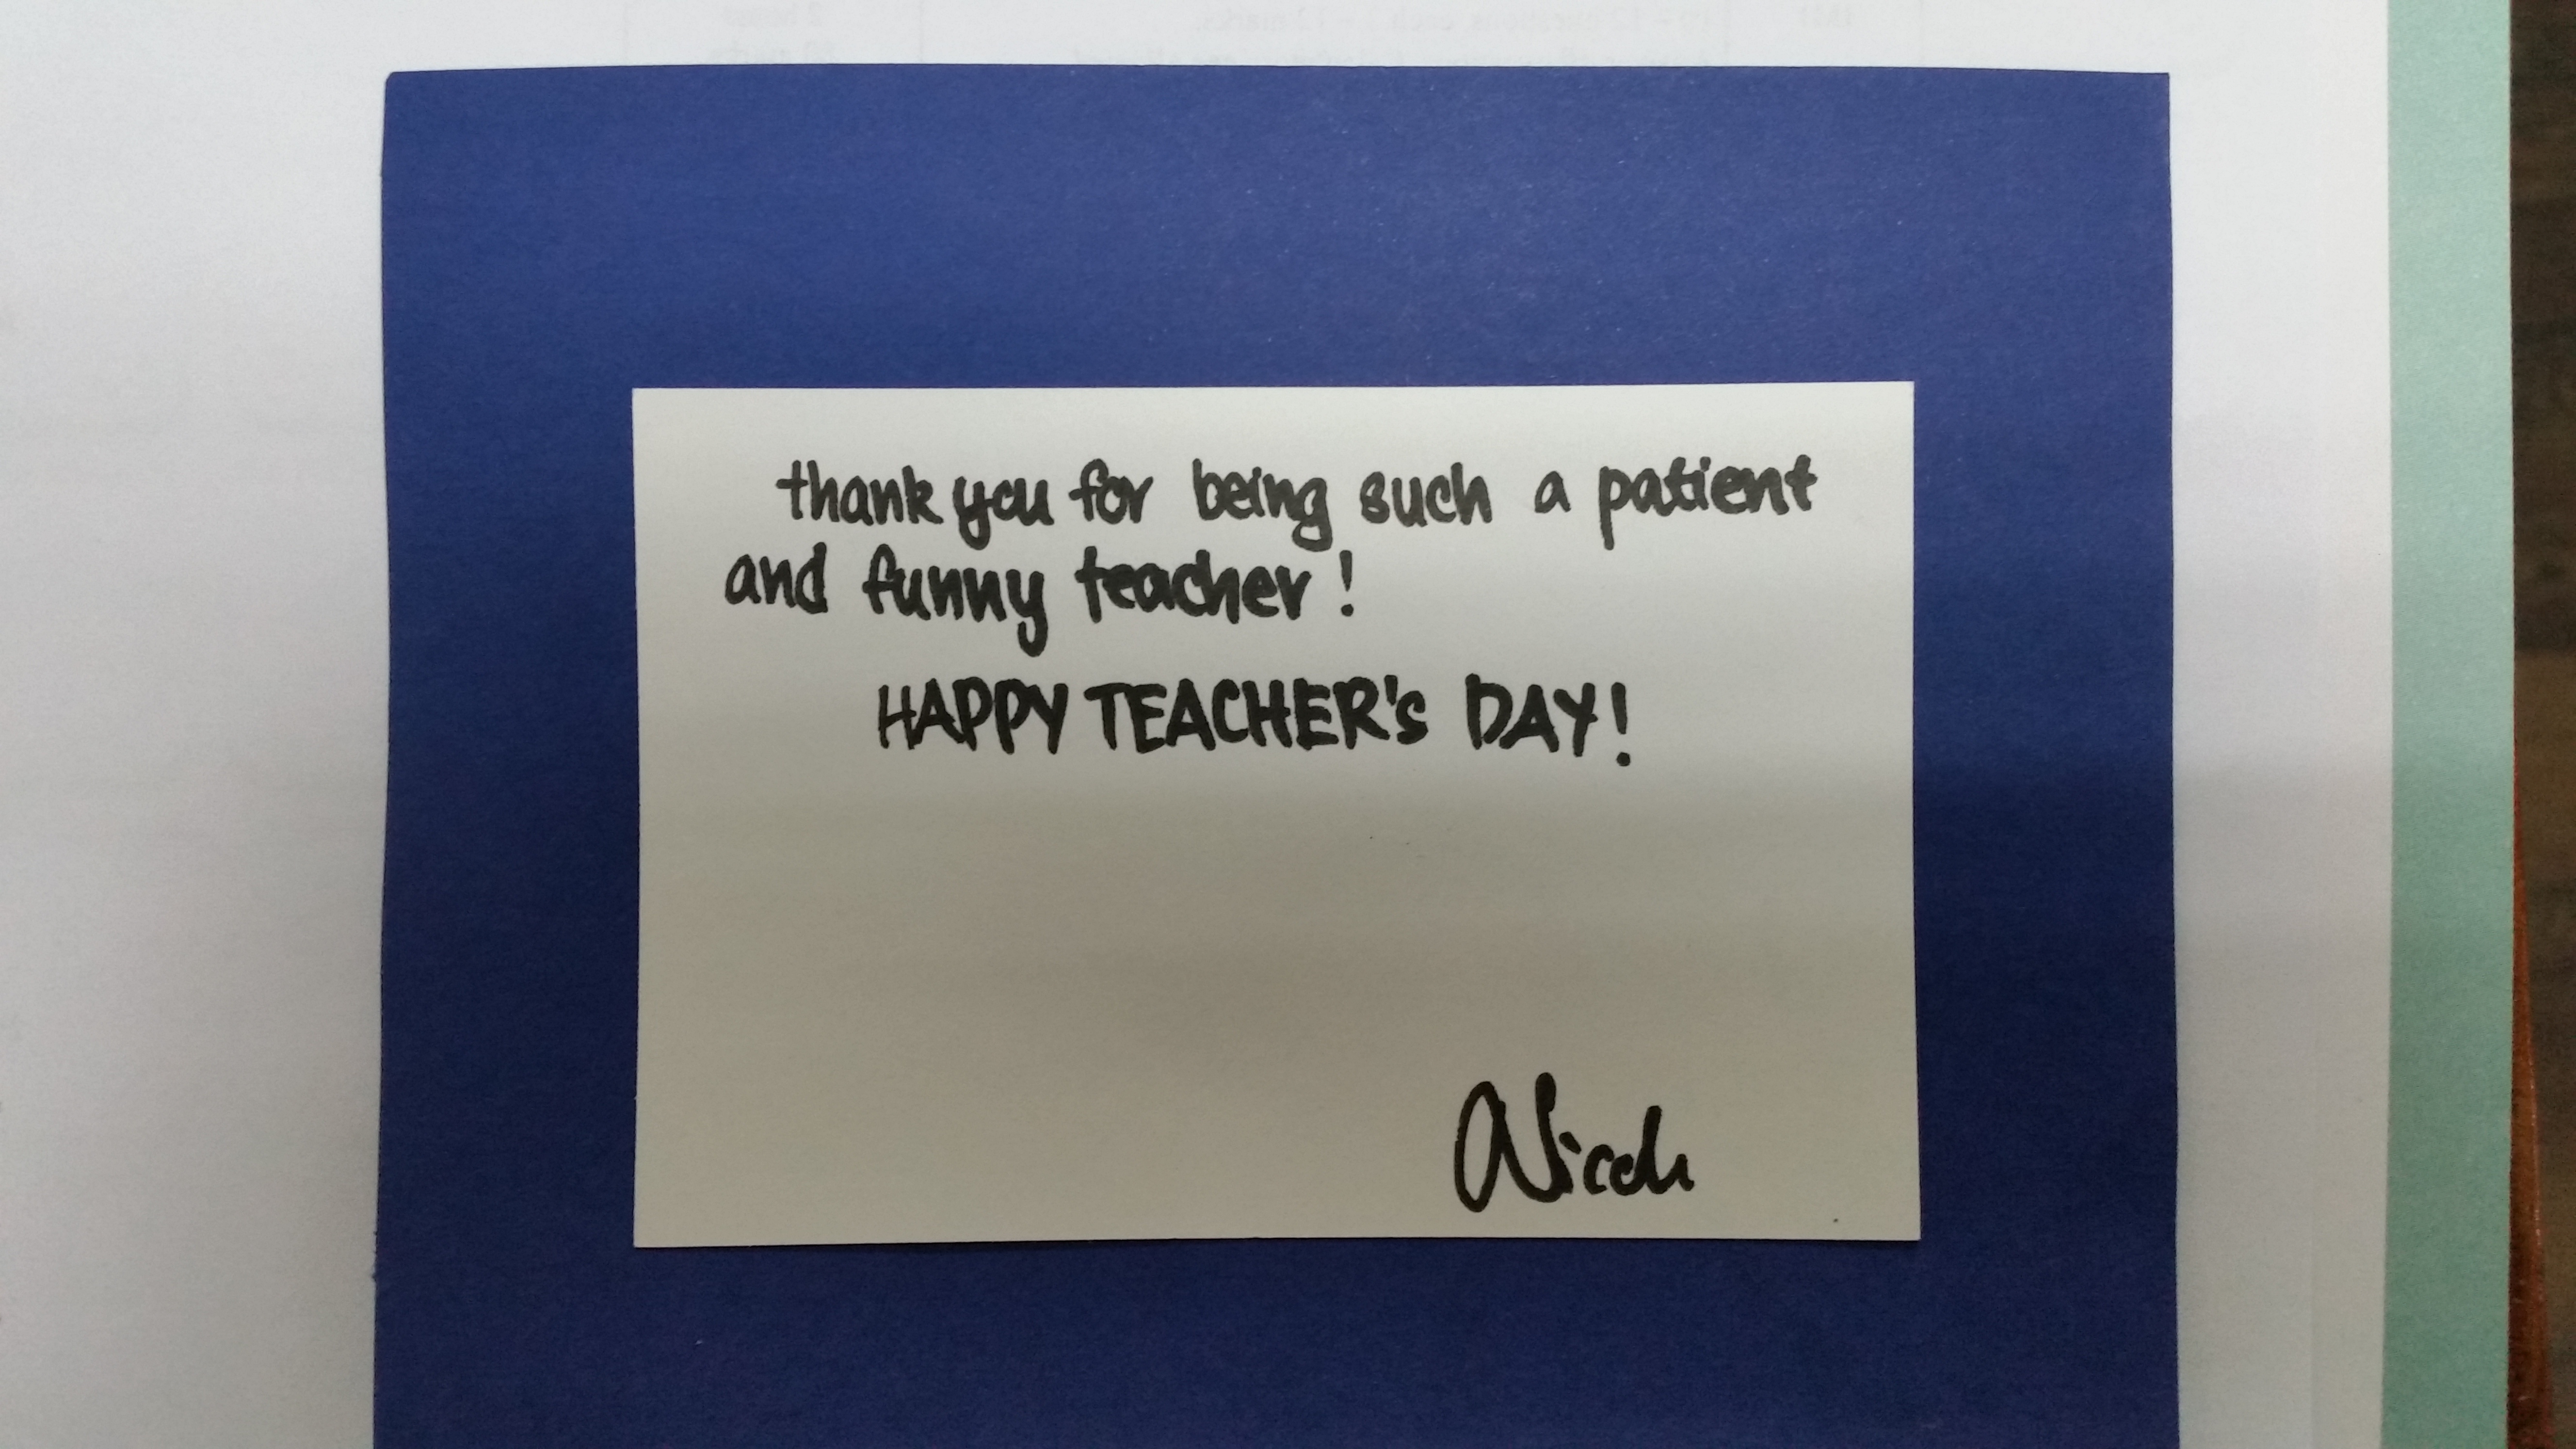 thank you for being such a patient
and funny teacher!
HAPPY TEACHER's DAY!
Nicole